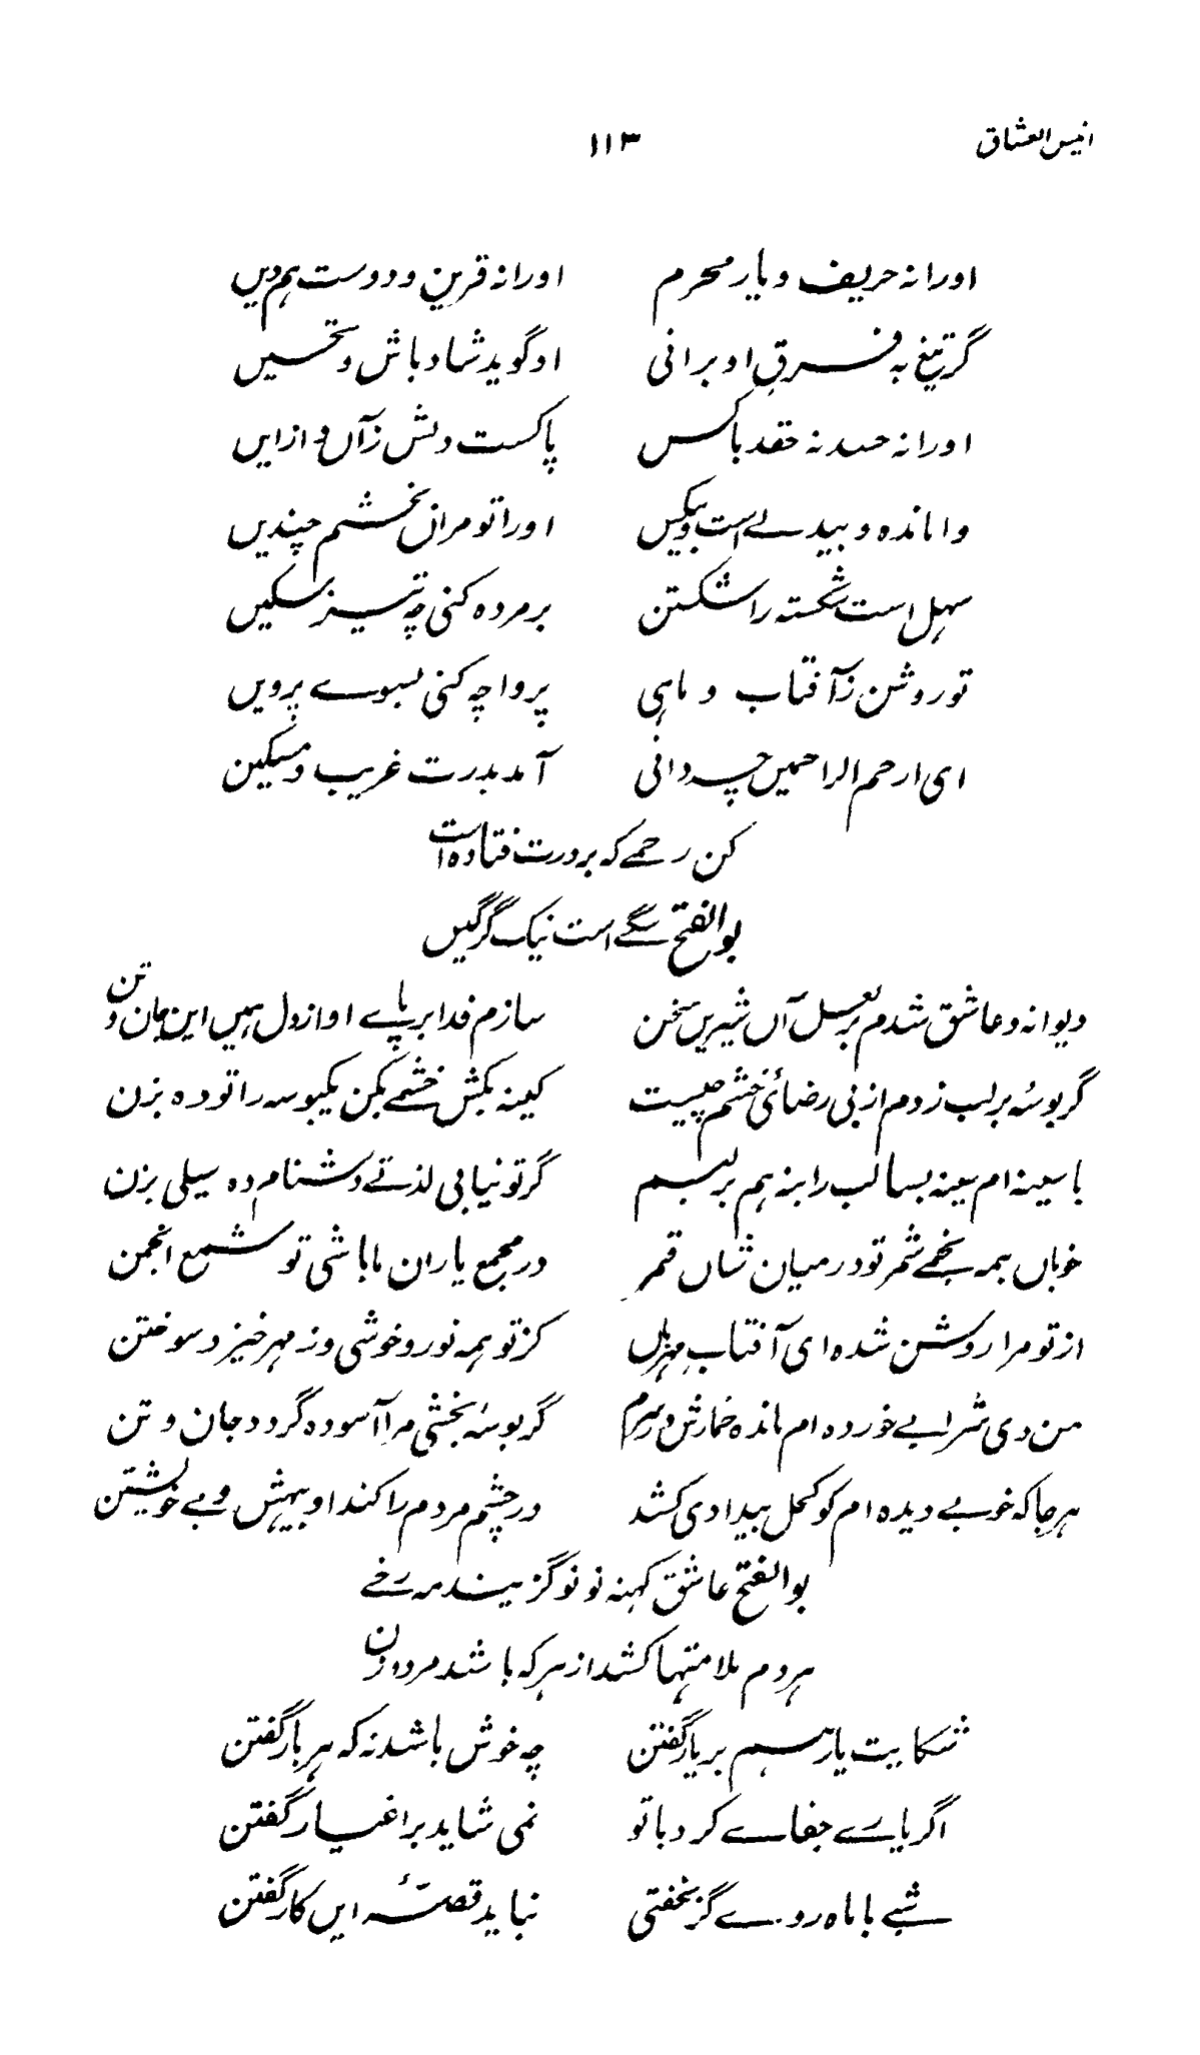 انیس العشاق ۱۱۳
اورا نہ حریف و یار محرم اورا نہ قرین و دوست ہم دیں
گر تیغ بہ فرق او برانی او گوید شاد باش و تحسیں
اورا نہ حسد نہ حقد باکس پاکست دلش زآں و ازایں
واماندہ و بیدلے است و بیکس اورا تو مراں بخشم چندیں
سہل است شکستہ را شکستن بر مردہ کنی چہ تیز سکیں
تو روشن زآفتاب و ماہی پروا چہ کنی بسوے پرویں
ای ارحم الراحمیں چہ دانی آمد بدرت غریب و مسکین
کن رحمے کہ بر درت فتادہ است
بوالفتح سگے است نیک گرگیں
دیوانہ و عاشق شدم بر لعل آں شیریں سخن سازم فدا بر پاے او از دل ہمیں این جان و تن
گر بوسہٴ بر لب زدم از بی رضائی خشم چیست کینہ بکش خشمے بکن یکبوسہ را تو دہ بزن
با سینہ ام سینہ بسا لب را بنہ ہم بر لبم گر تو نیابی لذتے دشنام دہ سیلی بزن
خوباں ہمہ نجمے شمر تو درمیان شاں قمر در مجمع یاران ما باشی تو شمع انجمن
از تو مرا روشن شدہ ای آفتاب مہرباں کز تو ہمہ نور و خوشی وز مہر خیزد سوختن
من دی شرابے خوردہ ام ماندہ خمارش در سرم گر بوسہٴ بخشی مرا آسودہ گردد جان و تن
ہر جا کہ خوبے دیدہ ام کو کحل بیدادی کشد در چشم مردم را کند او بیہش و بے خویشتن
بوالفتح عاشق کہنہ نو نو گزیند مہ رخے
ہر دم ملامتہا کشد از ہر کہ باشد مرد و زن
شکایت یار ہم بر یار گفتن چہ خوش باشد نہ کہ ہر بار گفتن
اگر یارے جفاے کرد با تو نمی شاید بر اغیار گفتن
شبے با ماہ روے گر بخفتی نباید قصۂ ایں کار گفتن